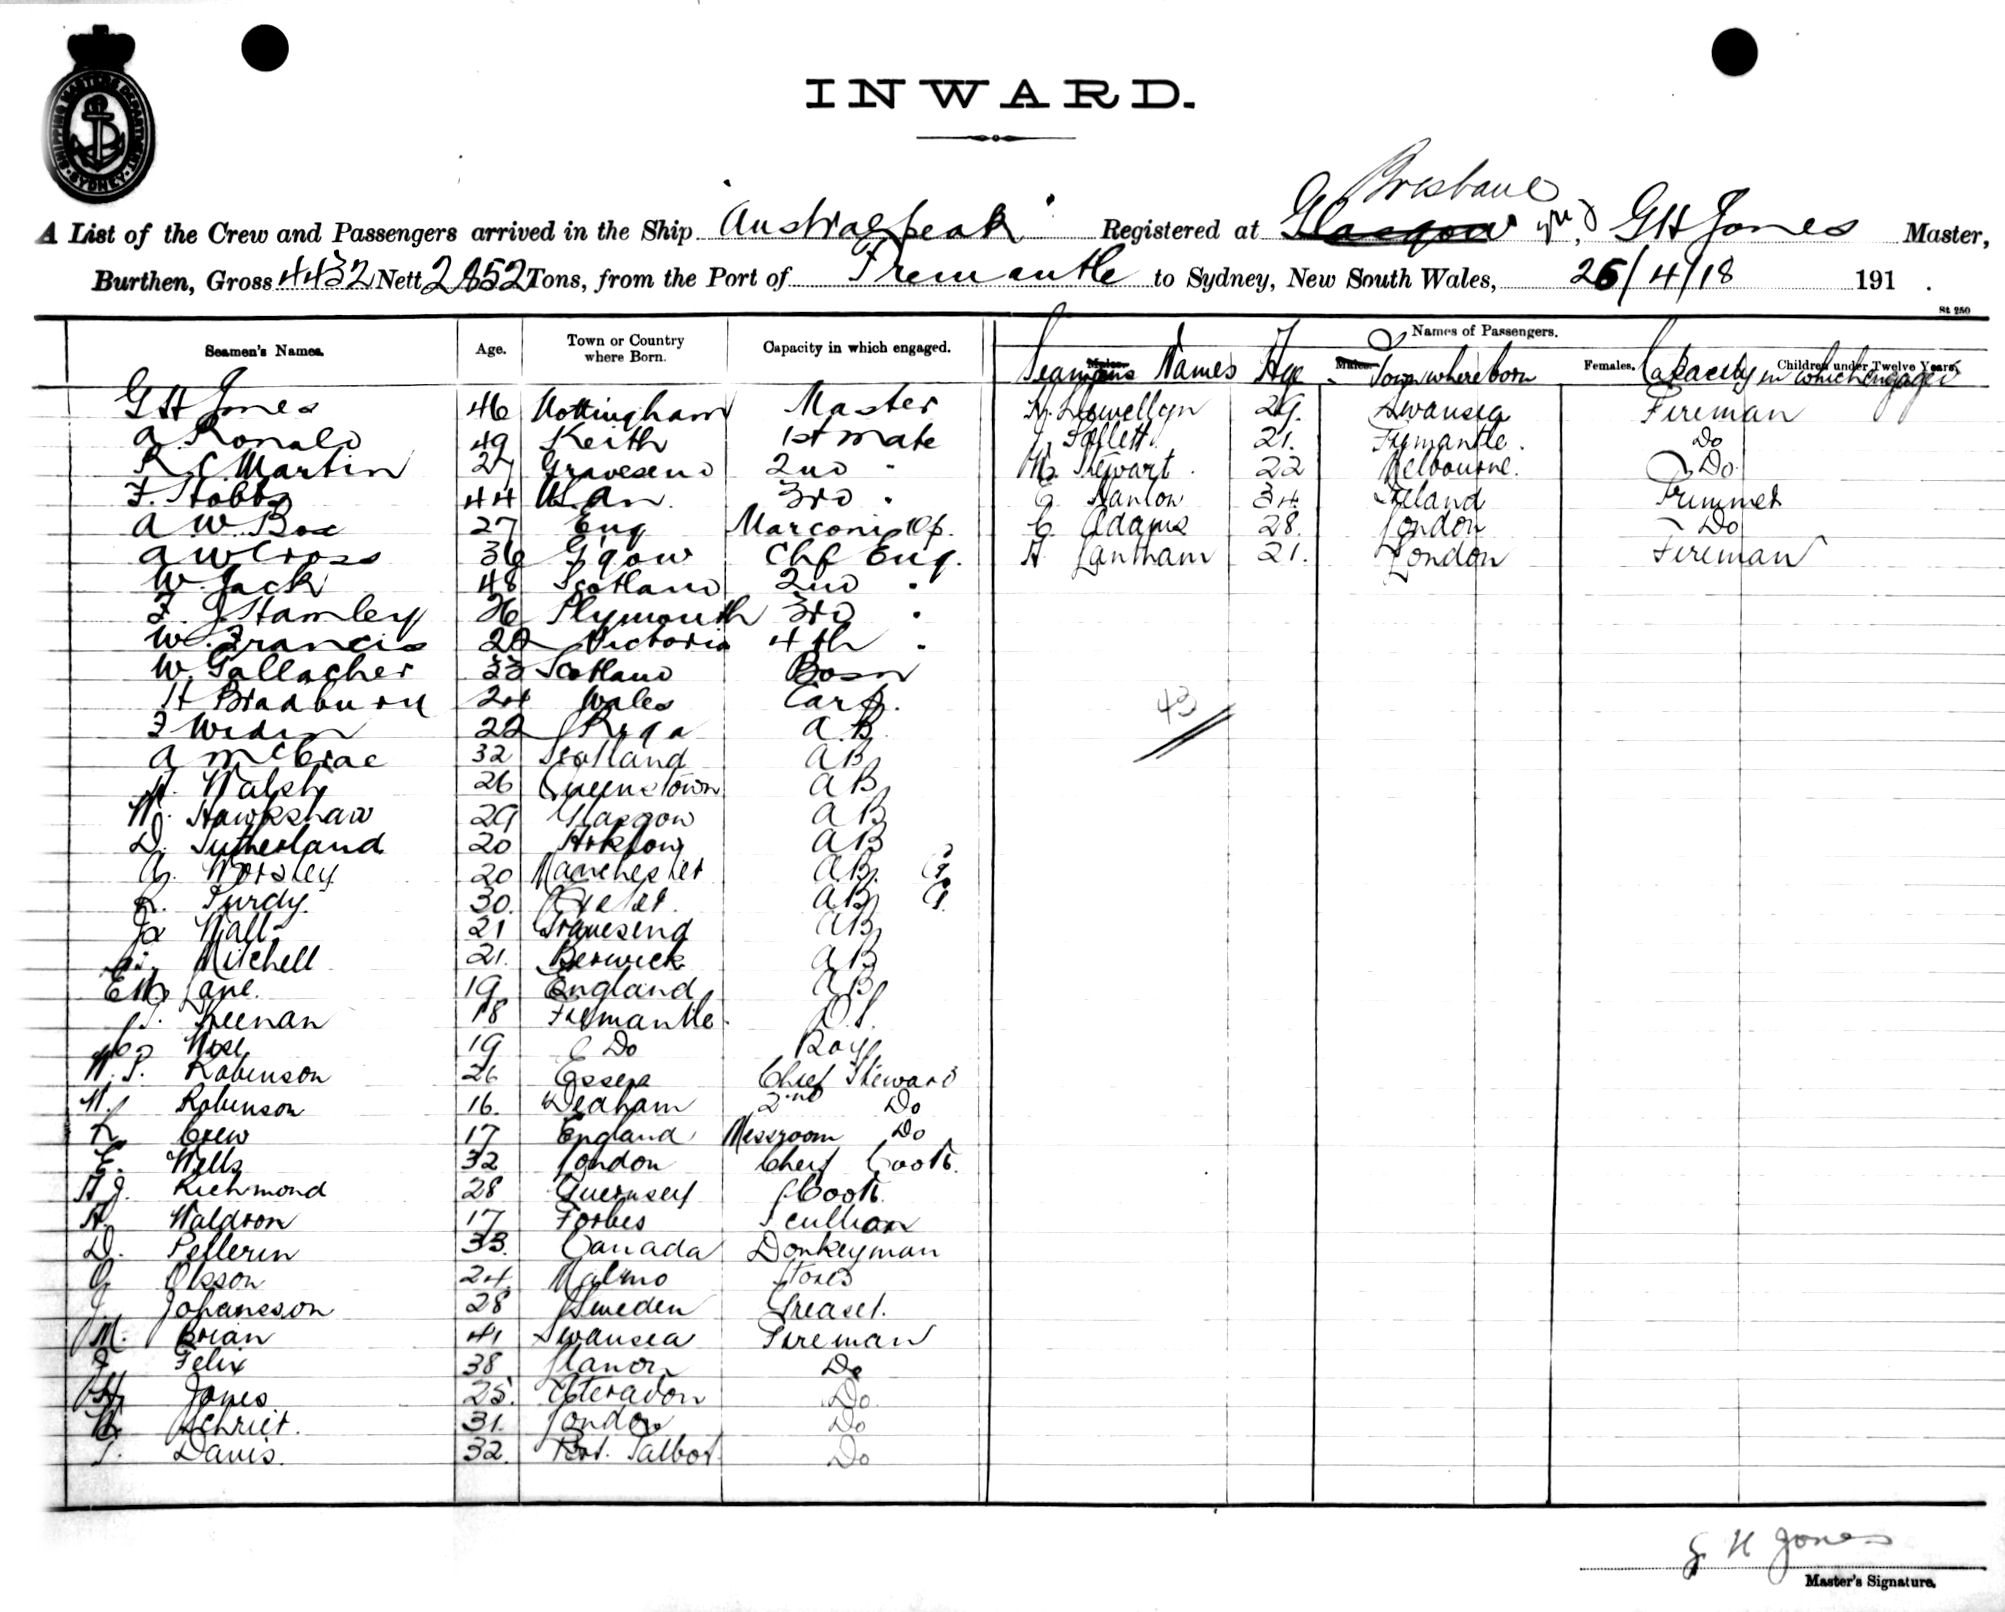 SHIPPING MASTERS DEPARTMENT SYDNEY
INWARD.
Brisbane
A List of the Crew and Passengers arrived in the Ship "Australpeak" Registered at Glasgow GH Jones Master,
Burthen, Gross 4432 Nett 2852 Tons, from the Port of Fremantle to Sydney, New South Wales, 26/4/18 191 .
St 250
Seamen's Names. Age. Town or Country where Born. Capacity in which engaged. Names of Passengers.
Males. Males. Females. Children under Twelve Years.
Seamens Names Age Town where born Capacity in which engaged
GH Jones 46 Nottingham Master H. Llewellyn 29. Swansea Fireman
A Ronald 49 Keith 1st mate Follett. 21. Fremantle. Do
R C Martin 27 Gravesend 2nd " Stewart. 22 Melbourne. Do
F. Stobbs 44 3rd " Hanlon 34. Ireland Trimmer
A W Box 27 Eng Marconi Op. C. Adams 28. London Do
A W Cross 36 G'gow Chf Eng. H Lantham 21. London Fireman
W Jack 48 Scotland 2nd "
F. J Stamley 26 Plymouth 3rd "
W. Francis 22 Victoria 4th "
W. Gallacher 33 Scotland Bosn
H Bradburn 24 Wales Carp.
43
22 Riga A.B.
A McCrae 32 Scotland AB
Walsh 26 Queenstown AB
W. Hawkshaw 29 Glasgow AB
D. Sutherland 20 AB
Worsley 20 Manchester AB. G
R. Purdy. 30. AB G.
Wall 21 Gravesend AB
Mitchell 21. Berwick AB
EW Lane. 19 England AB
Keenan 18 Fremantle. O.S.
19 Do Boy
W.P. Robinson 26 Essex Chief Steward
W. Robinson 16. Dedham 2nd Do
Crew 17 England Messroom Do
E. Wells 32 London Chief Cook.
H J. Richmond 28 Guernsey Cook.
H. Waldron 17 Forbes Scullion
D. Pellerin 33. Canada Donkeyman
G Olsson 24. Malmo Stores
J Johansson 28 Sweden Greaser.
M. Brian 41 Swansea Fireman
F Felix 38 Llanon Do
H Jones 25. Do
31. London Do
T. Davis. 32. Port. Talbot. Do
G H Jones
Master's Signature.